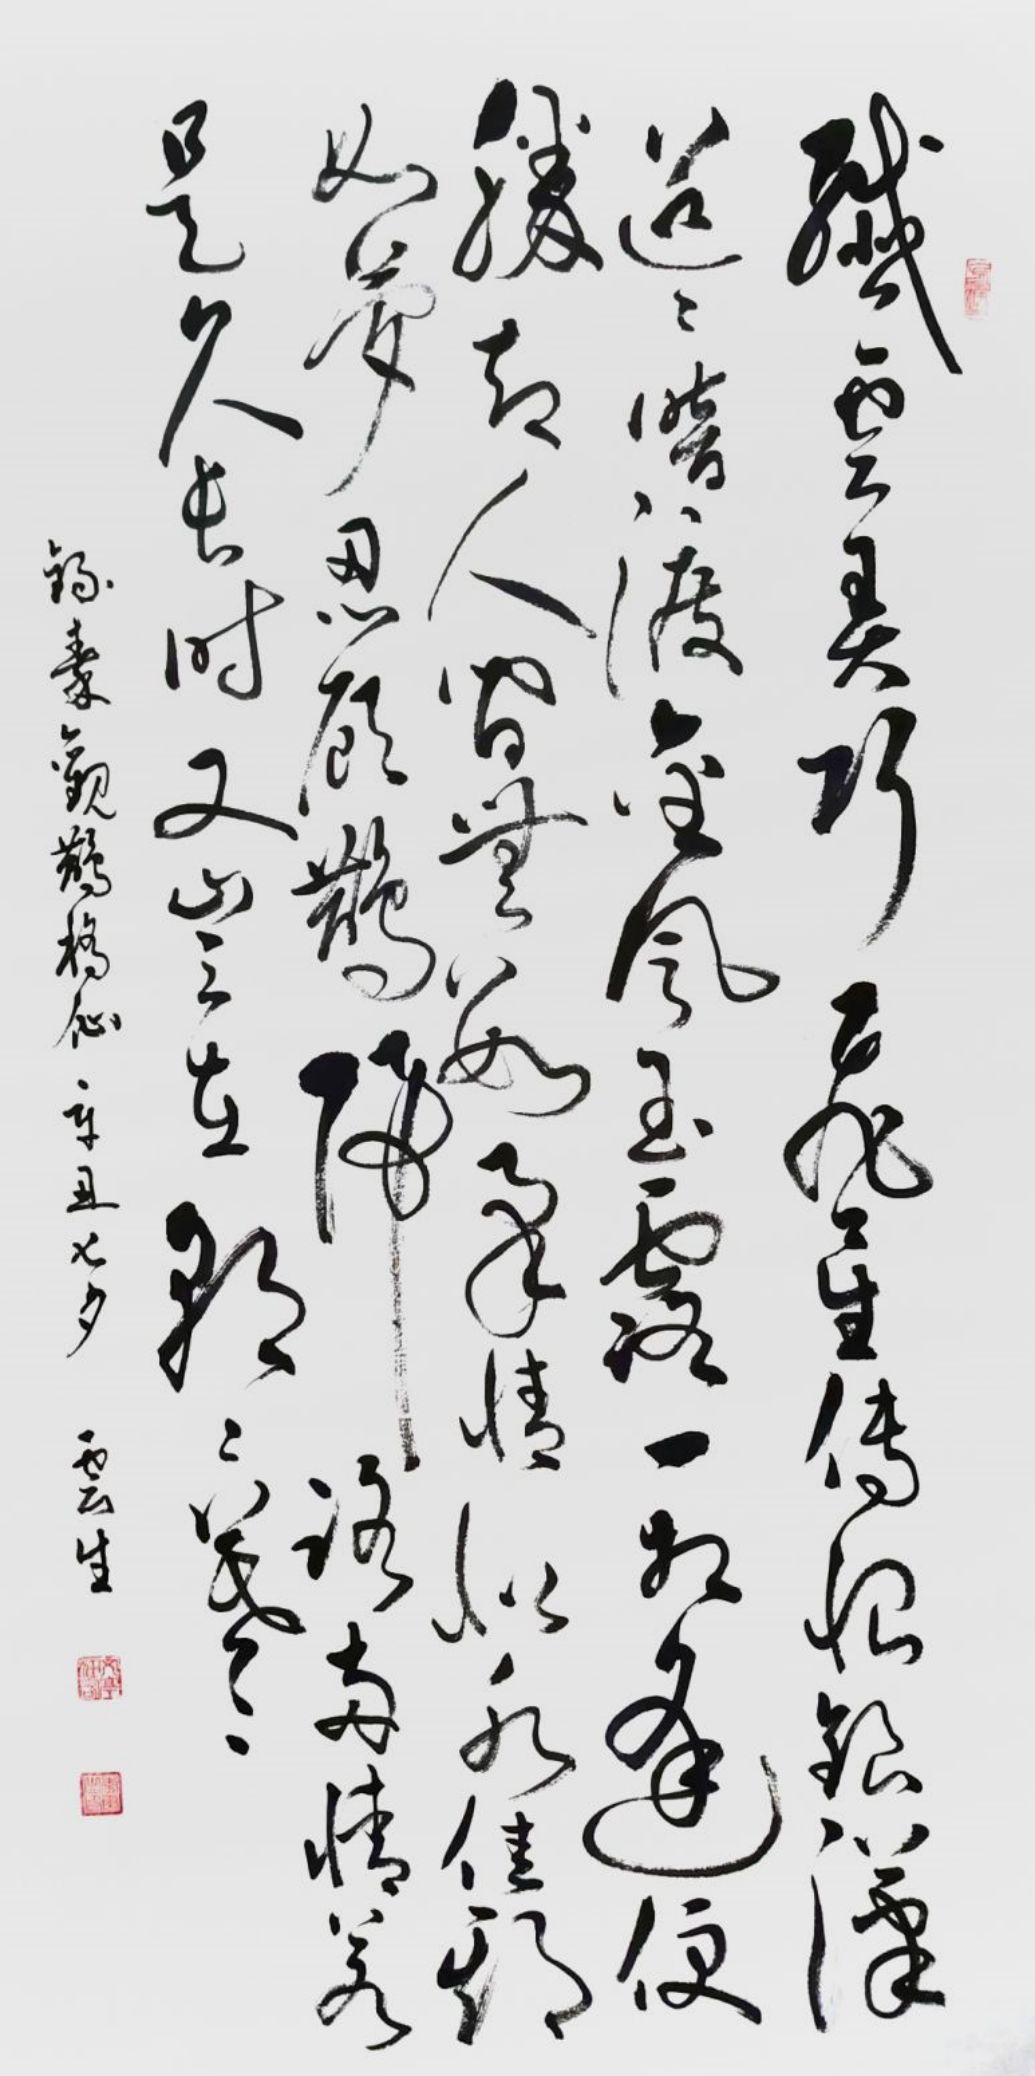 纖雲弄巧飛星傳恨銀漢
迢〻暗渡金風玉露一相逢便
勝却人間無數柔情似水佳期
如夢忍顧鵲歸路兩情若
是久長时又豈在朝〻暮〻
錄秦觀鵲橋仙 辛丑七夕 雲生